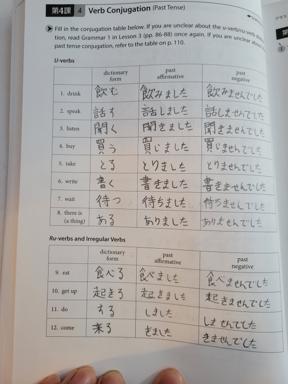 第4課 4 Verb Conjugation (Past Tense)
Fill in the conjugation table below. If you are unclear about the u-verb/ru-verb
tion, read Grammar 1 in Lesson 3 (pp. 86-88) once again. If you are unclear about
past tense conjugation, refer to the table on p. 110.
U-verbs
dictionary form past affirmative past negative
1. drink 飲む 飲みました 飲みませんでした
2. speak 話す 話しました 話しませんでした
3. listen 聞く 聞きました 聞きませんでした
4. buy 買う 買いました 買いませんでした
5. take とる とりました とりませんでした
6. write 書く 書きました 書きませんでした
7. wait 待つ 待ちました 待ちませんでした
8. there is (a thing) ある ありました ありませんでした
Ru-verbs and Irregular Verbs
dictionary form past affirmative past negative
9. eat 食べる 食べました 食べませんでした
10. get up 起きる 起きました 起きませんでした
11. do する しました しませんでした
12. come 来る きました きませんでした